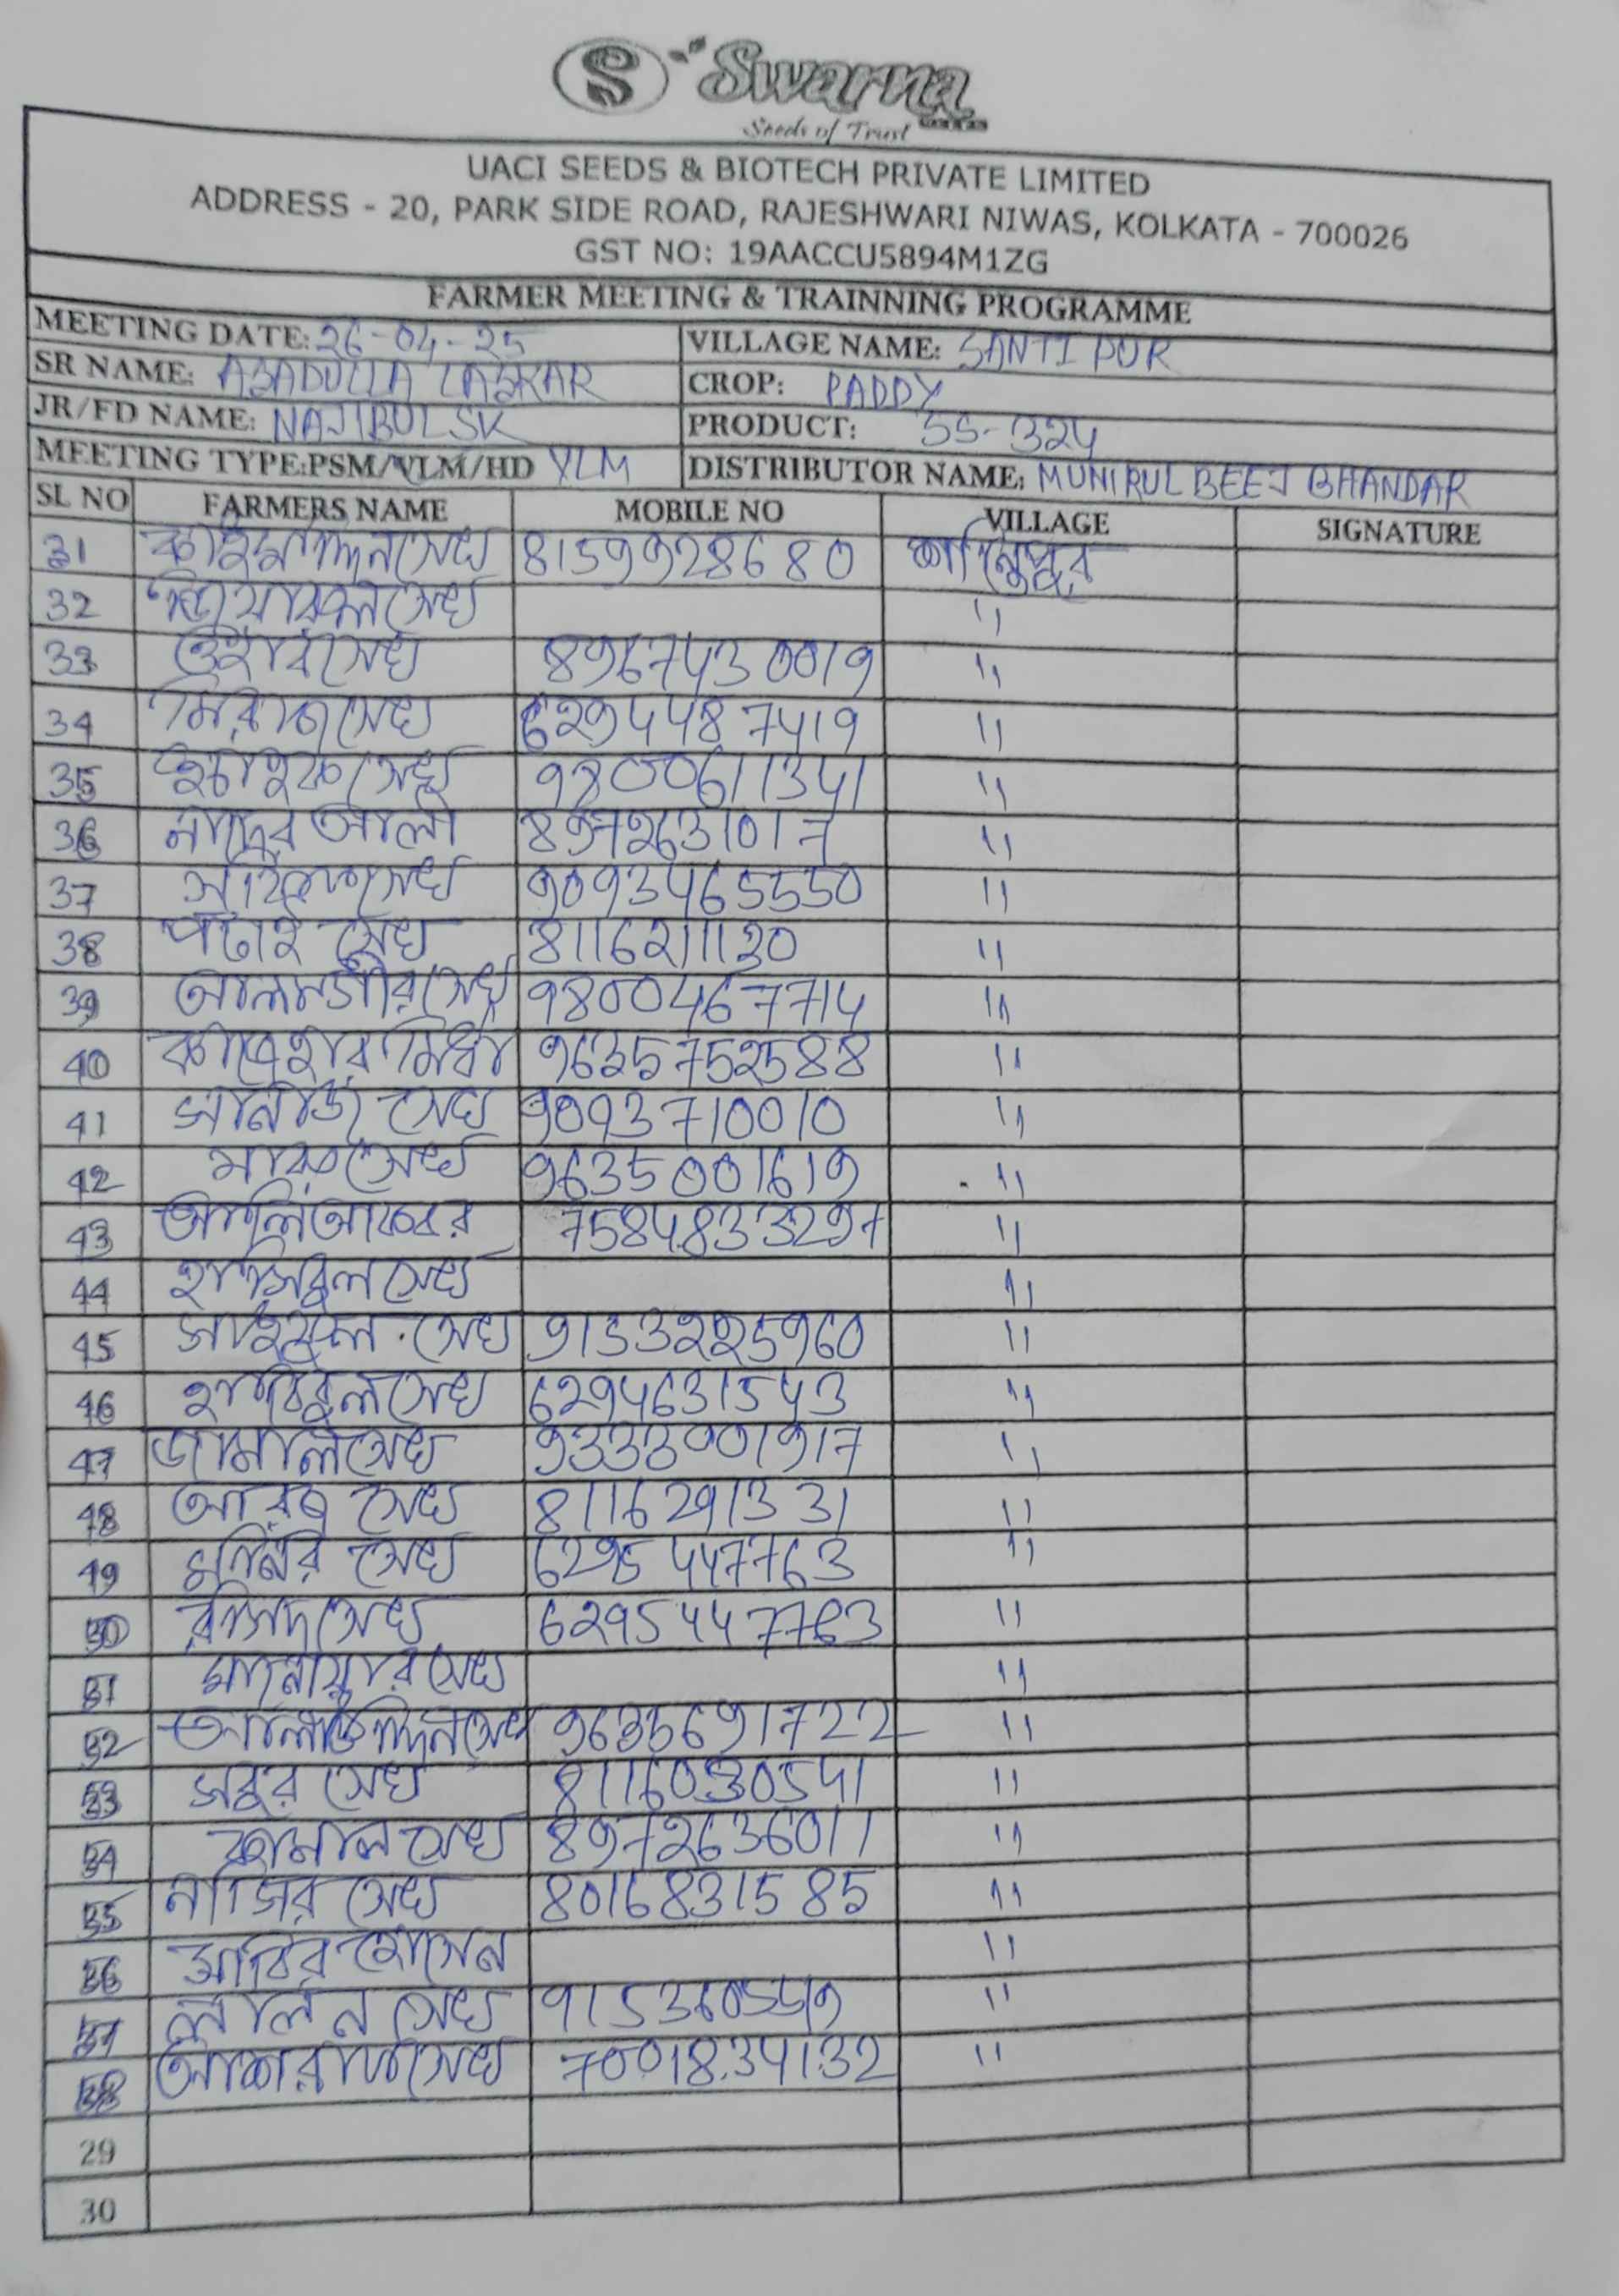 S Swarna
Seeds of Trust
UACI SEEDS & BIOTECH PRIVATE LIMITED
ADDRESS - 20, PARK SIDE ROAD, RAJESHWARI NIWAS, KOLKATA - 700026
GST NO: 19AACCU5894M1ZG
FARMER MEETING & TRAINNING PROGRAMME
MEETING DATE: 26-04-25 VILLAGE NAME: SANTIPUR
SR NAME: ASADULLA LASKAR CROP: PADDY
JR/FD NAME: NAJIBUL SK PRODUCT: SS-324
MEETING TYPE:PSM/VLM/HD VLM DISTRIBUTOR NAME: MUNIRUL BEEJ BHANDAR
SL NO FARMERS NAME MOBILE NO VILLAGE SIGNATURE
31 সেখ 8159928680 শান্তিপুর
32 সেখ "
33 সেখ 8967430019 "
34 মিরাজ সেখ 6294487419 "
35 সেখ 9800611341 "
36 নাদের আলী 8972631017 "
37 সেখ 9093465550 "
38 পচাই সেখ 8116211120 "
39 আলমগীর সেখ 9800467714 "
40 9635752588 "
41 সেখ 9093710010 "
42 সেখ 9635001619 "
43 আলি আকবর 7584833297 "
44 হাসিবুল সেখ "
45 সাইফুল সেখ 9153225960 "
46 হাবিবুল সেখ 6294631543 "
47 জামাল সেখ 9333001917 "
48 আরব সেখ 8116291331 "
49 মনির সেখ 6295447763 "
50 রসিদ সেখ 6295447763 "
51 সেখ "
52 আলাউদ্দিন সেখ 9635691722 "
53 সবুর সেখ 8116030541 "
54 কামাল সেখ 8972636011 "
55 নাজির সেখ 8016831585 "
56 সাবির হোসেন "
57 লালন সেখ 9153605549 "
58 আশরাফ সেখ 7001834132 "
29
30